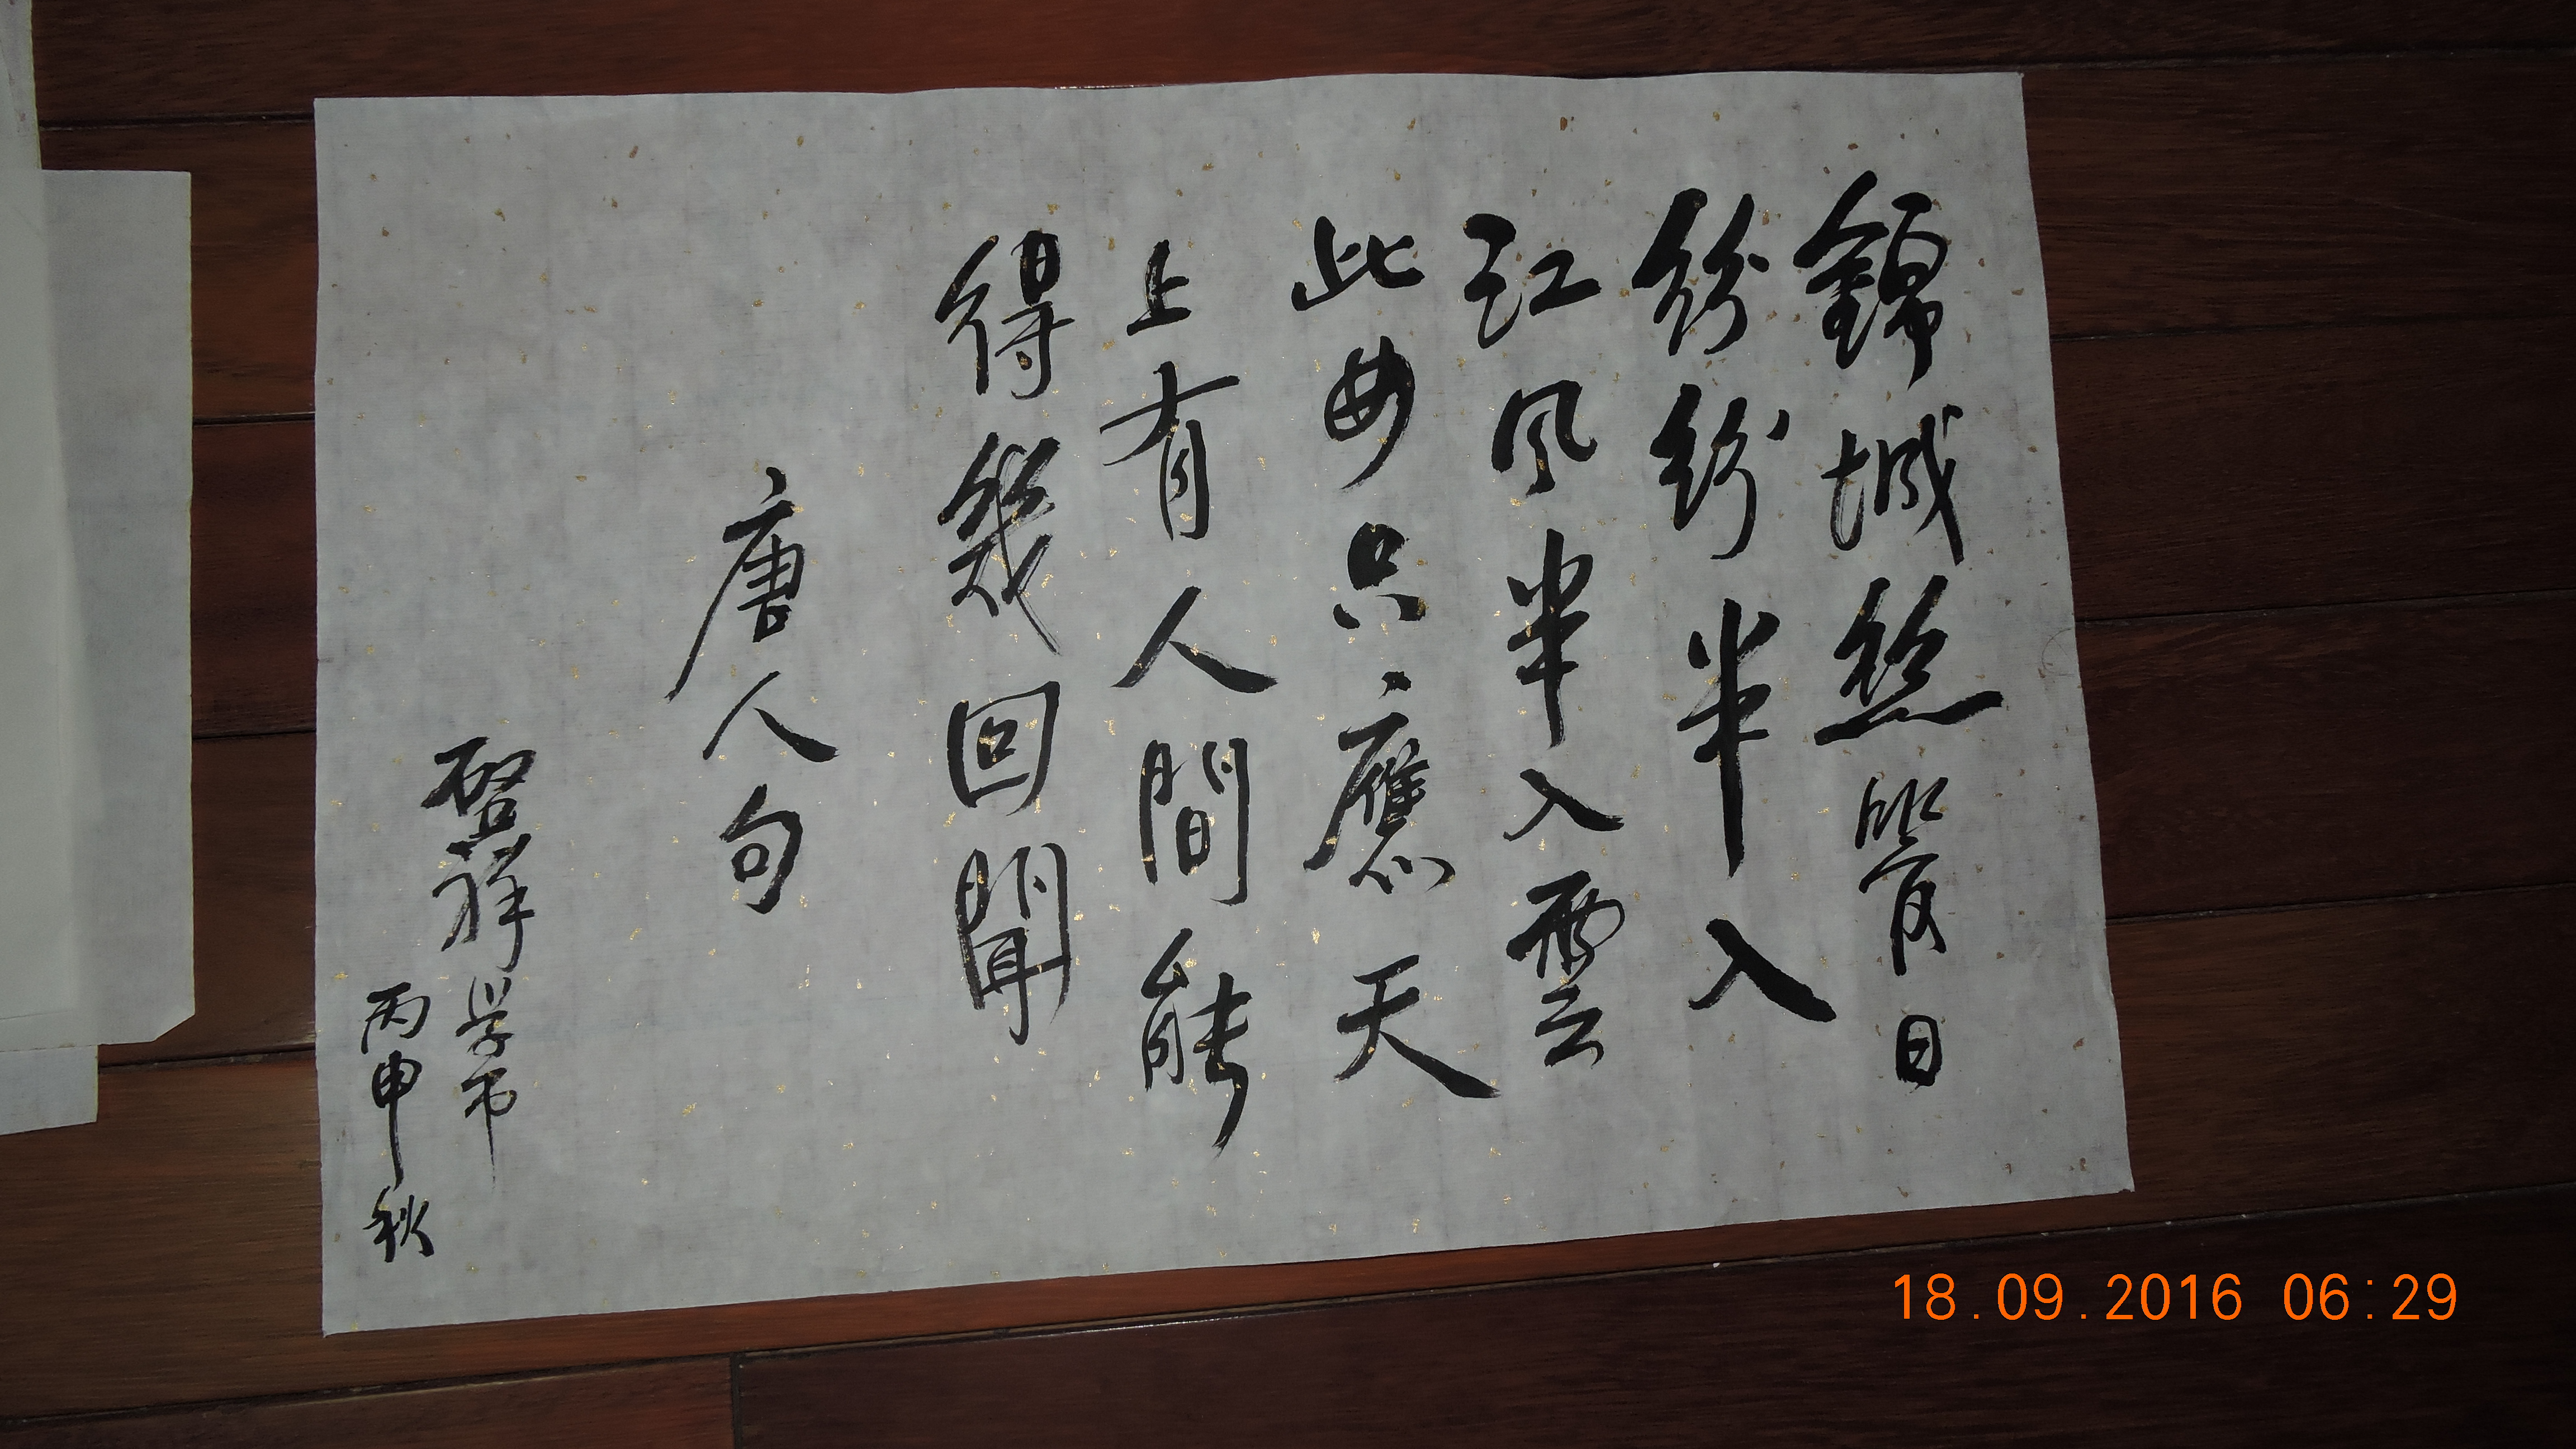 錦城絲管日
紛紛半入
江風半入雲
此曲只應天
上有人間能
得幾回聞
唐人句
啓祥学书
丙申秋
18.09.2016 06:29